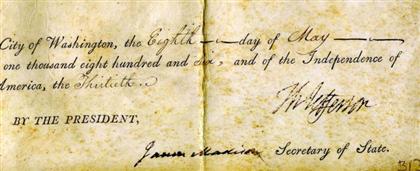 City of Washington, the Eighth day of May
one thousand eight hundred and Six, and of the Independence of
America, the Thirtieth.
Th Jefferson
BY THE PRESIDENT,
James Madison Secretary of State.